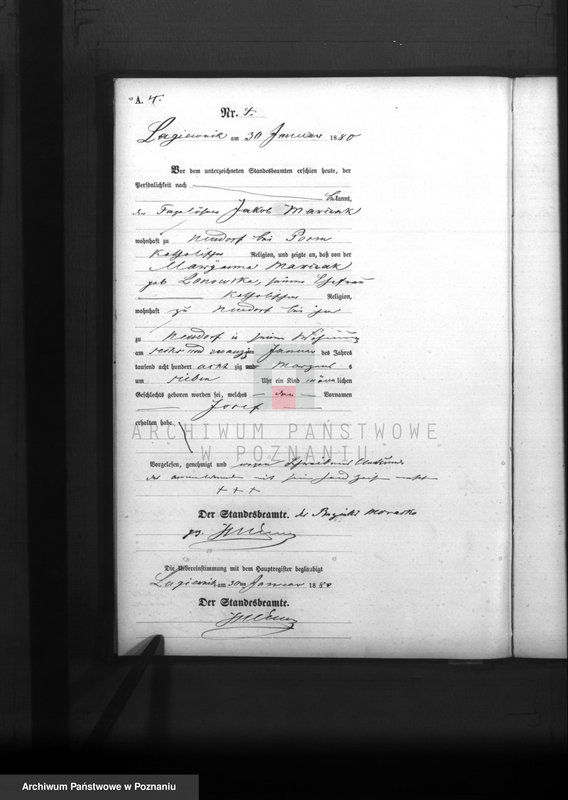 A. 4.
Nr. 4.
Lagiewnik am 30 Januar 1880
Vor dem unterzeichneten Standesbeamten erschien heute, der
Persönlichkeit nach
bekannt,
der Tagelöhner Jakob Marciak
wohnhaft zu Neudorf bei
katholischer Religion, und zeigte an, daß von der
Maryanna Marciak
geb. seine Ehefrau
katholischer Religion,
wohnhaft zu Neudorf bei ihm
zu Neudorf in seiner Wohnung
am sechs und zwanzigsten Januar des Jahres
tausend acht hundert acht zig Morgens
um sieben Uhr ein Kind männlichen
Geschlechts geboren worden sei, welches den Vornamen
Josef
erhalten habe.
ARCHIWUM PAŃSTWOWE
W POZNANIU
Vorgelesen, genehmigt und wegen Schreibens
der mit seinem Handzeichen
+ + +
Der Standesbeamte. des Bezirks Morasko
gz.
Die Übereinstimmung mit dem Hauptregister beglaubigt
Lagiewnik am 30ten Januar 1880
Der Standesbeamte.
Archiwum Państwowe w Poznaniu